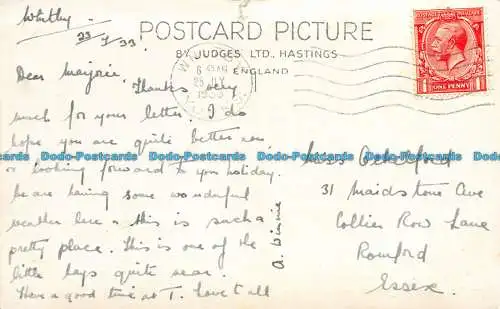 Whitby
23/7/33
POSTCARD PICTURE
BY JUDGES LTD., HASTINGS
ENGLAND
Dear Marjorie, Thanks very
much for your letter. I do
hope you are quite better now
& looking forward to your holiday.
We are having some wonderful
weather here & this is such a
pretty place. This is one of the
little bays quite near.
Have a good time at T. Love to all
A. Winnie
Miss
31 Maidstone Ave
Collier Row Lane
Romford
Essex.
POSTAGE REVENUE
ONE PENNY
Dodo-Postcards Dodo-Postcards Dodo-Postcards Dodo-Postcards Dodo-Postcards Dodo-Postcards